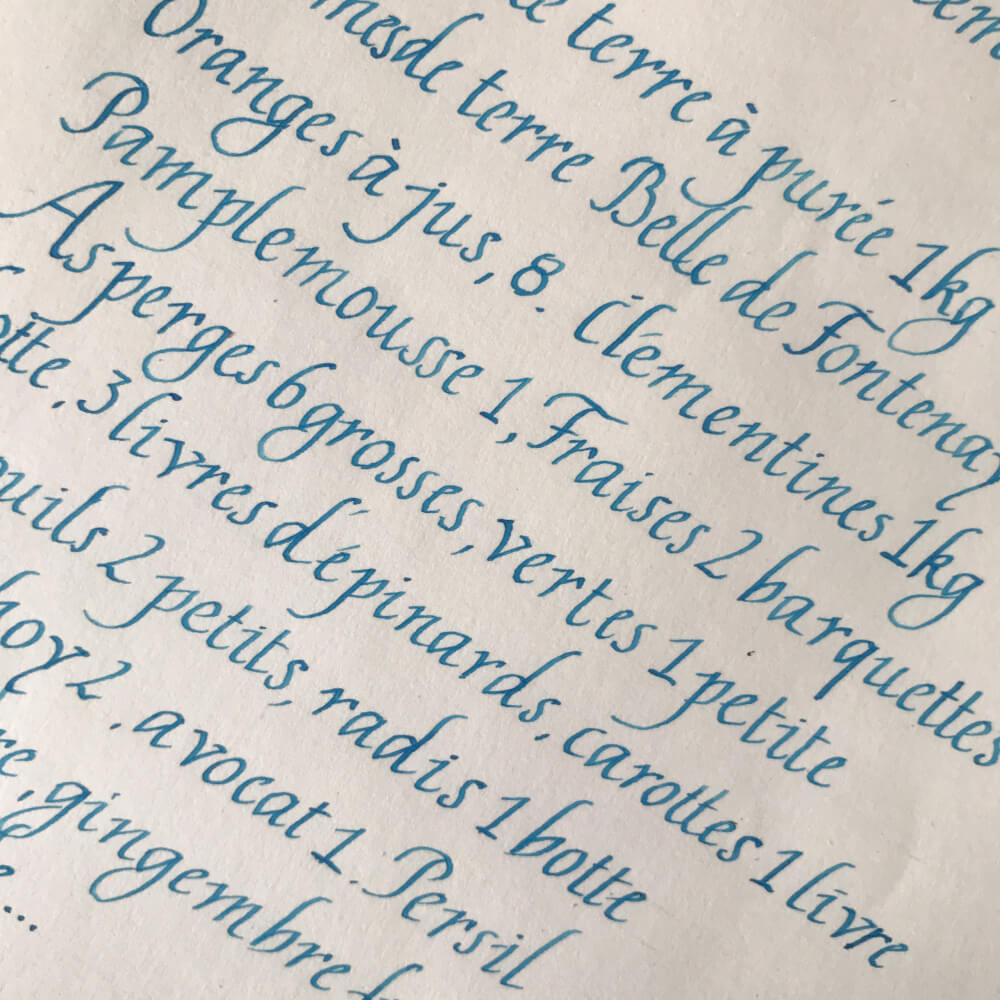 terre à purée 1kg
mesde terre Belle de Fontenay
Oranges à jus, 8. Clémentines 1kg
Pamplemousse 1, Fraises 2 barquettes
Asperges 6 grosses, vertes 1 petite
otte. 3 livres d'épinards, carottes 1 livre
ouils 2 petits, radis 1 botte
hoy 2. avocat 1. Persil
re, gingembre
...